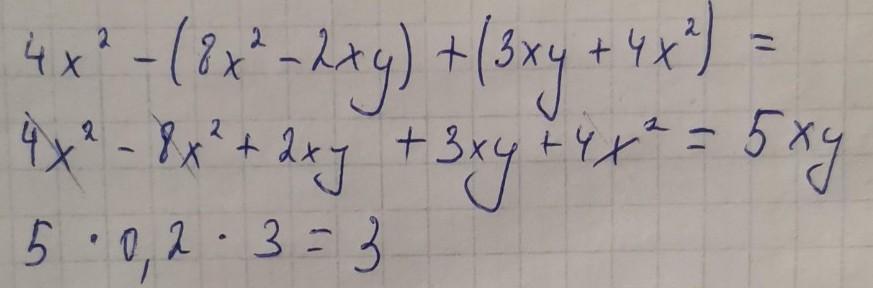 4x² - (8x² - 2xy) + (3xy + 4x²) =
4x² - 8x² + 2xy + 3xy + 4x² = 5xy
5 · 0,2 · 3 = 3